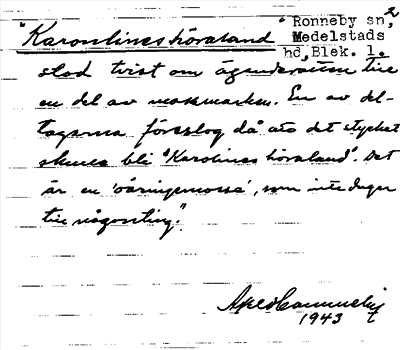 2
"Karoulines höraland
"Ronneby sn,
Medelstads
hd, Blek. l.
stod tvist om äganderätten till
en del av markmarken. En av del-
tagarna föreslog då att det stycket
skulle bli "Karolines höraland". Det
är en som inte duger
till någonting."
1943